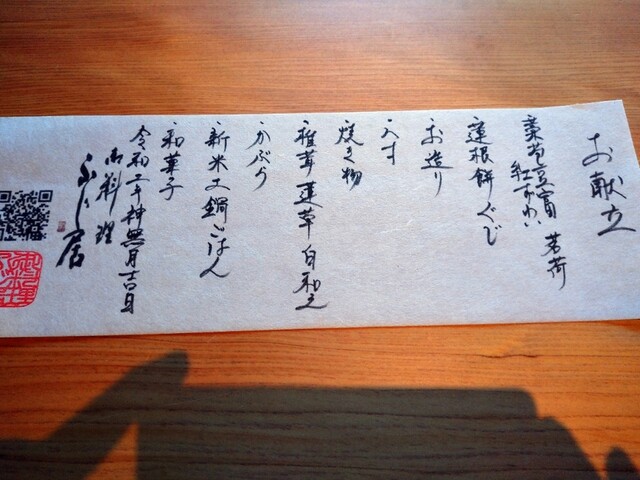 お献立
豆富
紅ずわい 茗荷
蓮根餅 ぐじ
お造り
八寸
焼き物
椎茸 蓮草 白和え
かぶら
新米 土鍋ごはん
和菓子
令和二年神無月吉日
御料理
ふじ居